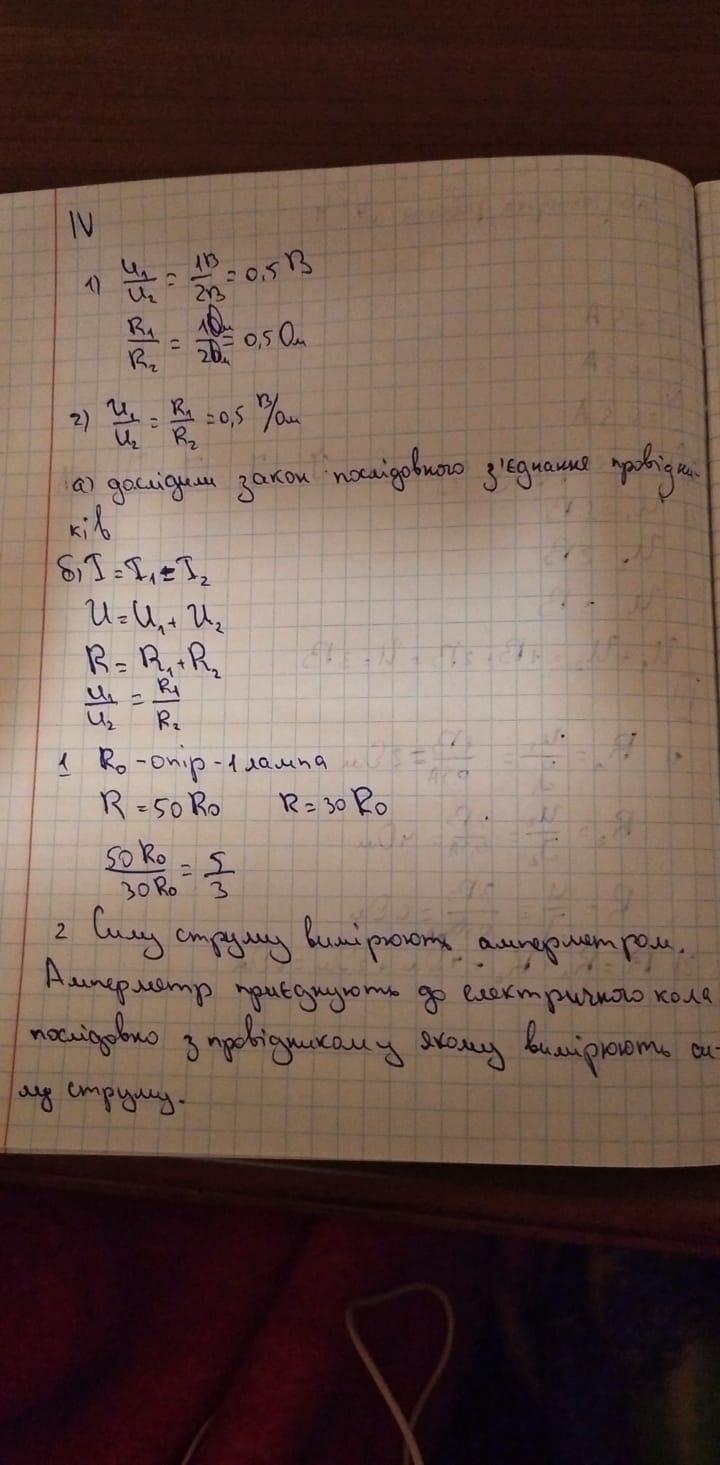 IV
1) U₁/U₂ = 1В/2В = 0,5 В
R₁/R₂ = 1Ом/2Ом = 0,5 Ом
2) U₁/U₂ = R₁/R₂ = 0,5 В/Ом
а) дослідили закон послідовного з'єднання провідни-
ків
б) I = I₁ = I₂
U = U₁ + U₂
R = R₁ + R₂
U₁/U₂ = R₁/R₂
1 R₀ - опір - 1 лампа
R = 50 R₀ R = 30 R₀
50 R₀/30 R₀ = 5/3
2 Силу струму вимірюють амперметром.
Амперметр приєднують до електричного кола
послідовно з провідником у якому вимірюють си-
лу струму.